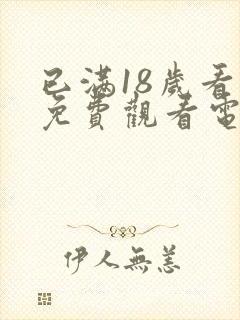 已滿18歲看
免費觀看電
伊人無恙